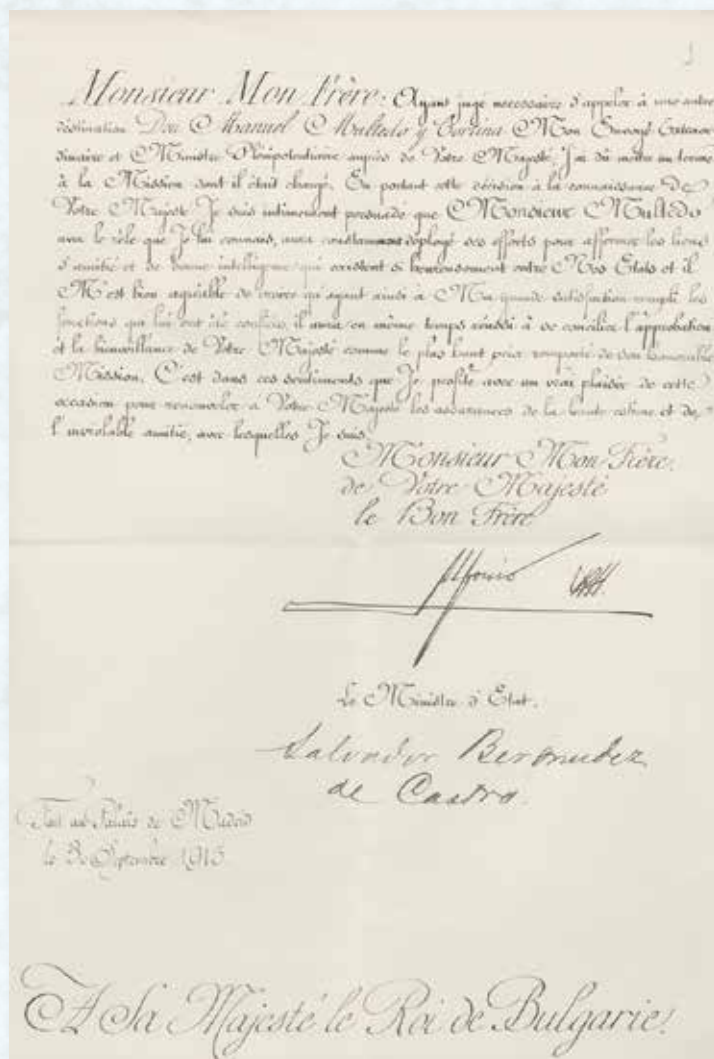 Monsieur Mon Frère: Ayant jugé nécessaire d'appeler à une autre
destination Don Manuel Multedo y Cortina Mon Envoyé Extraor
dinaire et Ministre Plénipotentiaire auprès de Votre Majesté, J'ai dû mettre un terme
à la Mission dont il était chargé. En portant cette décision à la connaissance de
Votre Majesté Je suis intimement persuadé que Monsieur Multedo
avec le zèle que Je lui connais, aura constamment déployé ses efforts pour affermir les liens
d'amitié et de bonne intelligence qui existent si heureusement entre Nos Etats et il
M'est bien agréable de croire qu'ayant ainsi à Ma grande satisfaction rempli les
fonctions qui lui ont été confiées, il aura en même temps réussi à se concilier l'approbation
et la bienveillance de Votre Majesté comme le plus haut prix remporté de son honorable
Mission. C'est dans ces sentiments que Je profite avec un vrai plaisir de cette
occasion pour renouveler à Votre Majesté les assurances de la haute estime et de
l'inviolable amitié, avec lesquelles Je suis,
Monsieur Mon Frère,
de Votre Majesté
le Bon Frère
Alfonso
Le Ministre d'Etat,
Salvador Bermudez
de Castro.
Fait au Palais de Madrid
le 3 Septembre 1913
A Sa Majesté le Roi de Bulgarie.